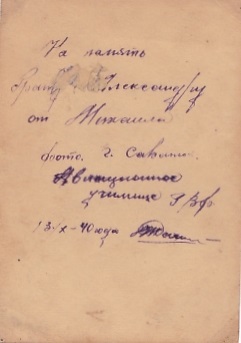 На память
брату Александру
от Михаила
фото. г.
Авиационное
училище ГВФ
40 года